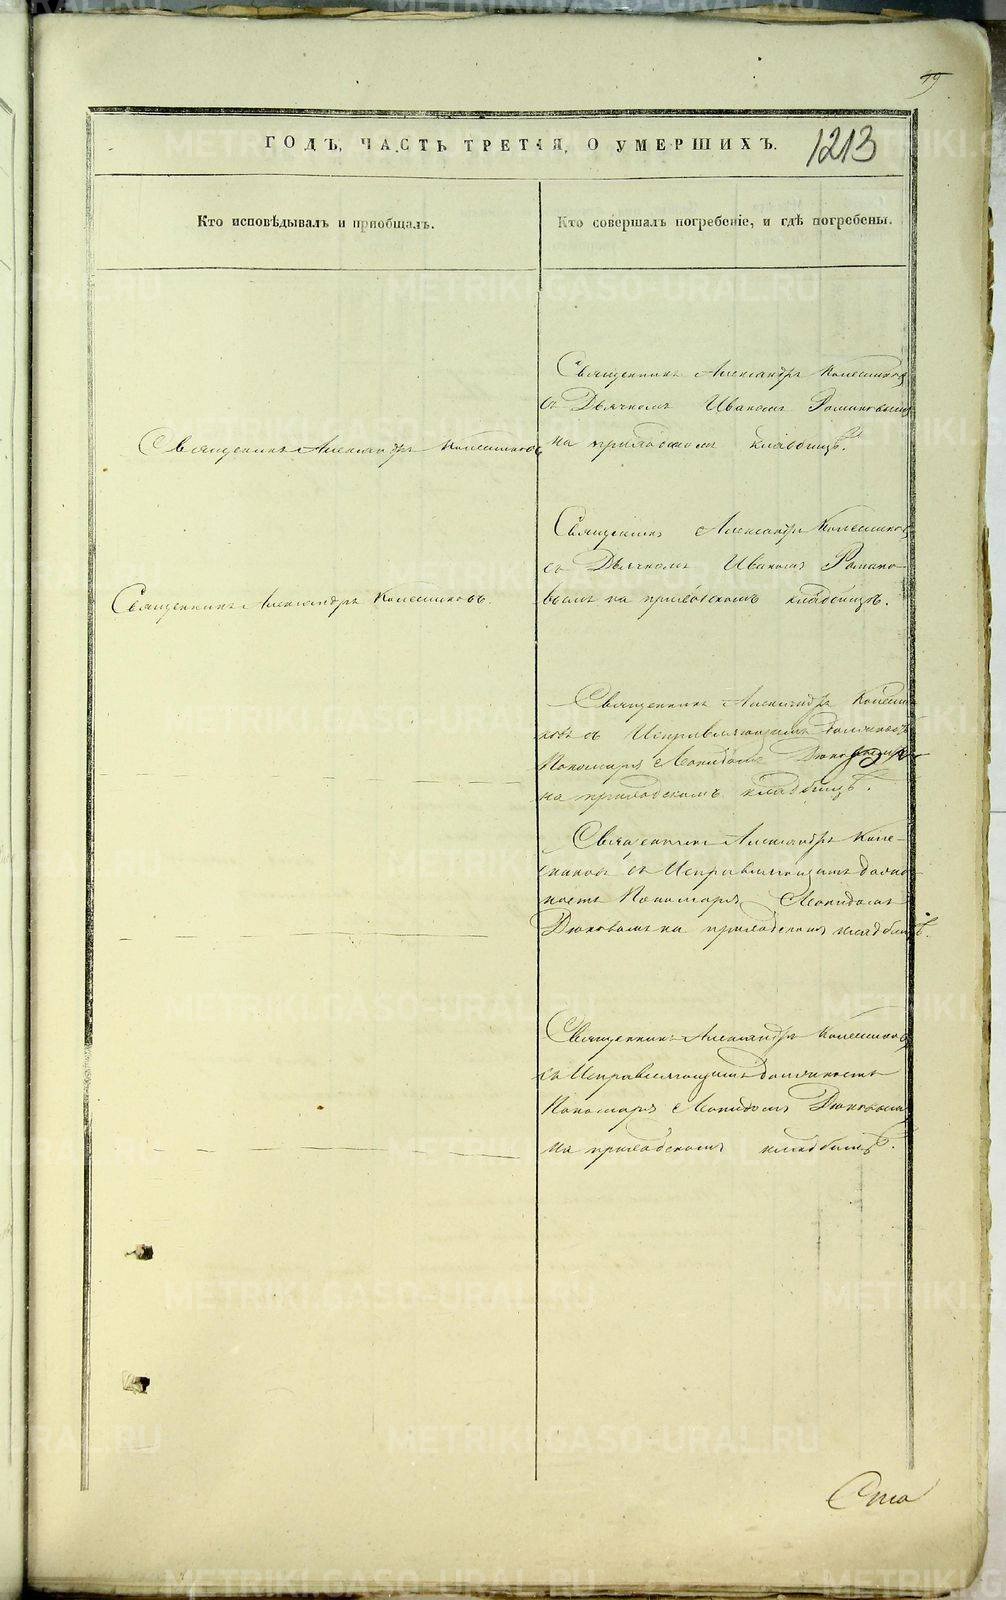 99
ГОДЪ, ЧАСТЬ ТРЕТІЯ, О УМЕРШИХЪ.
1213
Кто исповѣдывалъ и пріобщалъ.
Кто совершалъ погребеніе, и гдѣ погребены.
Священникъ Александръ Колесниковъ
Священникъ Александръ Колесниковъ
съ Дьячкомъ Иваномъ Романовымъ
на приходскомъ кладбищѣ.
Священникъ Александръ Колесниковъ.
Священникъ Александръ Колесниковъ
съ Дьячкомъ Иваномъ Романо-
вымъ на приходскомъ кладбищѣ.
Священникъ Александръ Колесни
ковъ съ Исправляющимъ должность
Пономаря
на приходскомъ кладбищѣ.
Священникъ Александръ Коле-
сниковъ съ Исправляющимъ долж-
ность Пономаря
на приходскомъ кладбищѣ.
Священникъ Александръ Колесниковъ
съ Исправляющимъ должность
Пономаря
на приходскомъ кладбищѣ.
METRIKI.GASO-URAL.RU